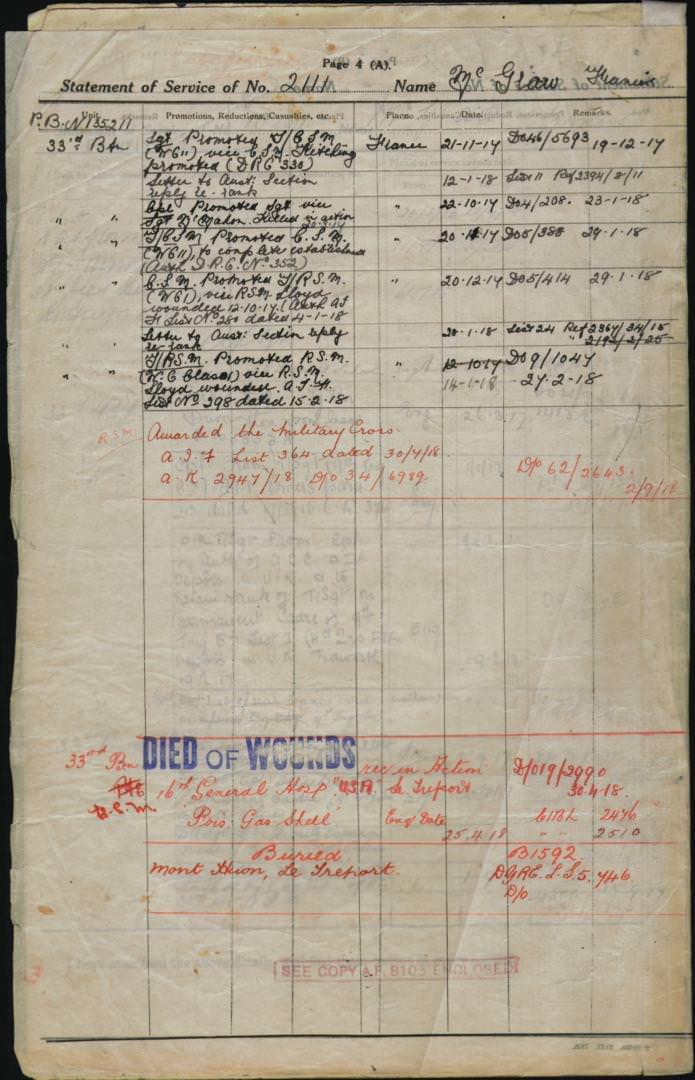 Page 4 (A).
Statement of Service of No. 2111 Name Mc Graw Francis
Unit. Promotions, Reductions, Casualties, etc. Place. Date. Remarks.
P.B.N 1352 11
33rd Btn Sgt Promoted T/C.S.M France 21-11-17 Do46/5693 19-12-17
(WO11), vice C.S.M. Kitching
promoted (DRO 330)
Letter to Aust: Section 12-1-18 List 11 Ref 2394/2/11
reply re-rank
Cpl Promoted Sgt vice " 22-10-17 Do4/208. 23-1-18
" " Sgt McMahon. Killed in action
" " T/C.S.M Promoted C.S.M. " 20-11-17 Do5/388 29-1-18
(WO11), to complete establishment
(Auth D.R.O. No. 352)
" " C.S.M. Promoted T/R.S.M. " 20-12-17 Do5/414 29-1-18
(WO1), vice RSM Lloyd
wounded 12-10-17. (Auth AI
F List No 280 dated 4-1-18
Letter to Aust: Section reply 20-1-18 List 24 Ref 2867/34/15
re-rank " 2192/2/25
" " T/RSM. Promoted R.S.M. " 12-10-17 Do9/1047
" " (W.O Class 1) vice R.S.M. 14-1-18 27-2-18
Lloyd wounded. A.I.F.
List No 298 dated 15-2-18
R.S.M. Awarded the Military Cross.
A.I.F List 364 dated 30/7/18 D/o 62/2643
A.K 2947/18 D/o 34/6989 2/9/18
33rd Btn DIED OF WOUNDS rec in Action D/o19/2990
16th General Hosp "USA" Le Treport. 30.4.18.
R.S.M. "Pois. Gas Shell" Eng Date 2476
25.4.18 " " 2510
Buried B1592
Mont Huon, Le Treport. DGRE. L.S5. 746
D/o
SEE COPY A.F. B103 ENCLOSED